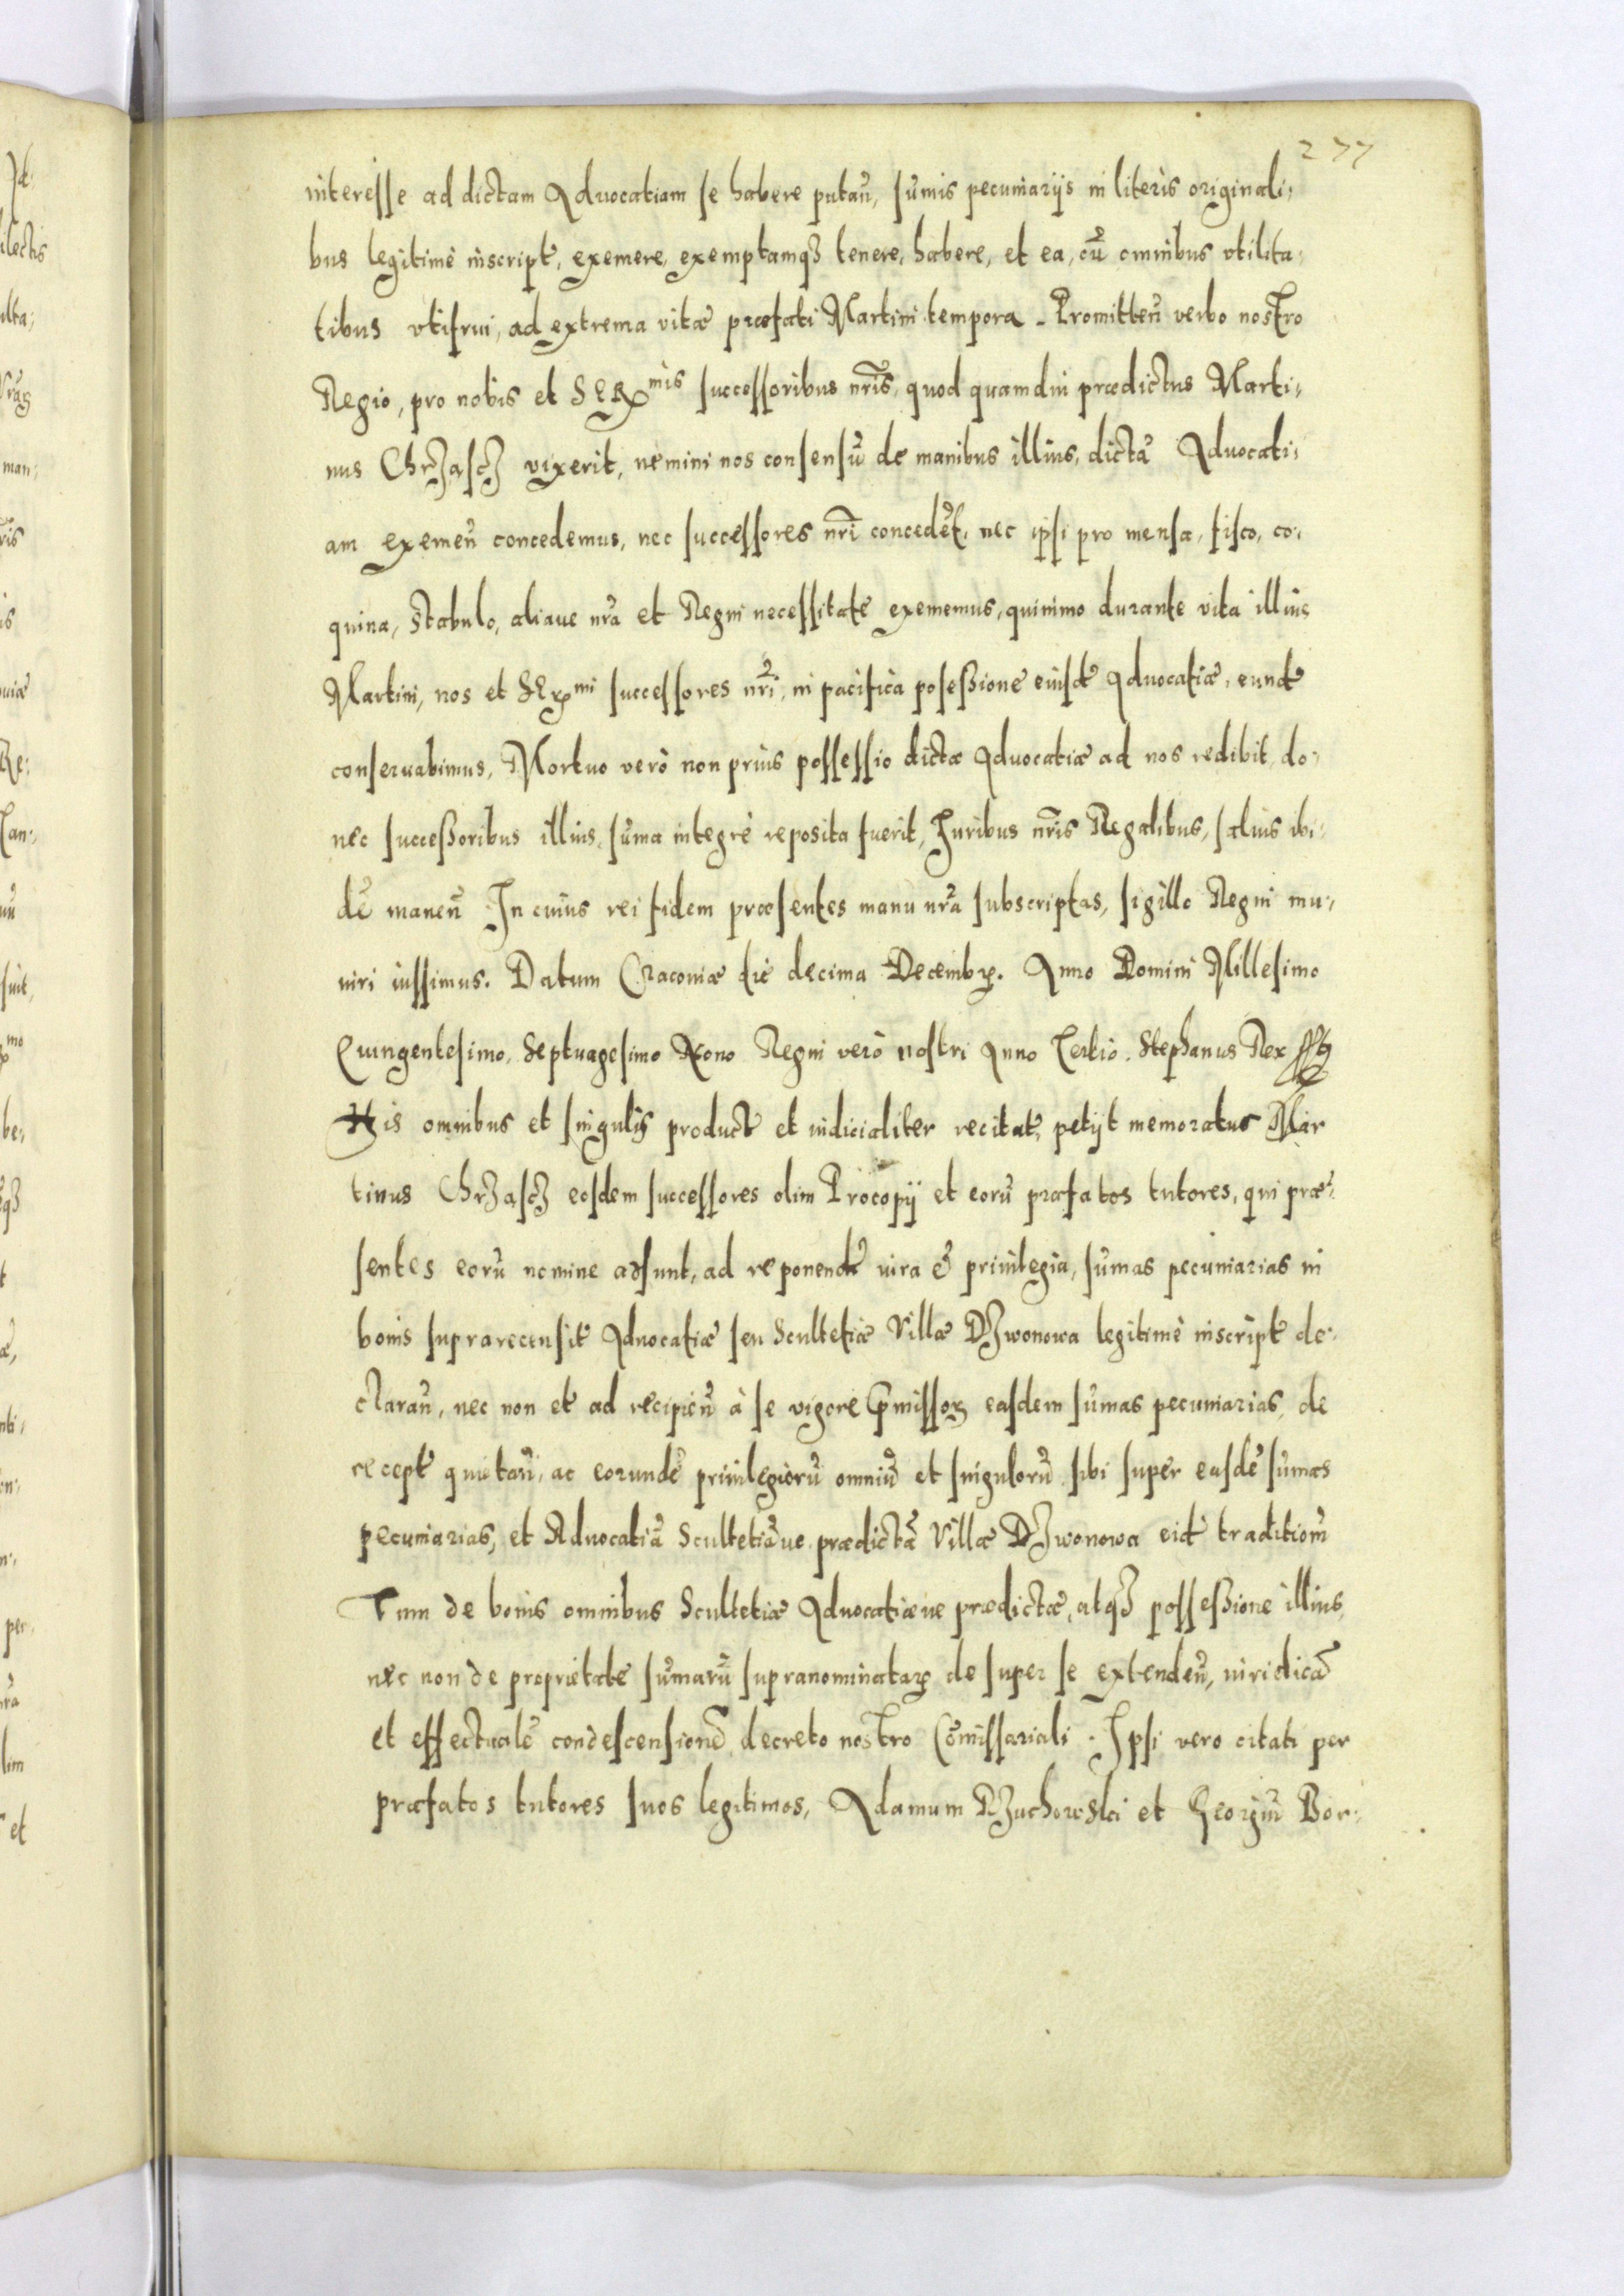 277
interesse ad dictam Aduocatiam se habere putań, sũmis pecuniarijs in literis originali,
bus legitimè inscript, exemere, exemptamqʒ tenere, habere, et ea, cũ omnibus vtilita,
tibus vtifrui, ad extrema vitæ præfati Martini tempora. Promitteń verbo nostro
Regio, pro nobis et SERmis successoribus nrĩs, quod quamdiu prædictus Marti,
nus Chrząszcz vixerit, nemini nos consensũ de manibus illius, dictã Aduocati,
am exemeń concedemus, nec successores nrĩ concedẽt, nec ipsi pro mensa, fisco, co,
quina, stabulo, aliaue nrã et Regni necessitate exememus, quinimo durante vita illius
Martini, nos et SERmi successores nrĩ, in pacifica posessione eiusd Aduocatiæ, eund
conseruabimus, Mortuo verò non priùs possessio dictæ Aduocatiæ ad nos redibit, do,
nec successoribus illius, sũma integrè reposita fuerit, Iuribus nrĩs Regalibus, saluis ibi,
dẽ maneń In cuius rei fidem præsentes manu nrã subscriptas, sigillo Regni mu,
niri iussimus. Datum Cracouiæ diè decima Decembr. Anno Domini Millesimo
Quingentesimo, Septuagesimo Nono Regni verò nostri Anno Tertio. Stephanus Rex sst
His omnibus et singulis product et iudicialiter recitat, petijt memoratus Mar
tinus Chrząszcz eosdem successores olim Procopij et eorũ præfatos tutores, qui præ,
sentes eorũ nomine adsunt, ad reponend iura & priuilegia, sũmas pecuniarias in
bonis suprarecensit Aduocatiæ seu Scultetiæ Villæ Dzwonowa legitimè inscript de,
clarań, nec non et ad recipień à se vigore p̃missor easdem sũmas pecuniarias, de
recept quietań, ac eorundẽ priuilegiorũ omniũ et singulorũ sibi super easdẽ sũmas
pecuniarias, et Aduocatiã Scultetiãue prædictã Villæ Dzwonowa eid traditiom̃
Tum de bonis omnibus Scultetiæ Aduocatiæue prædictæ, atqʒ possessione illius,
nec non de proprietate sũmarũ supranominatar de super se extendeń, iuridicã
et effectualẽ condescensionẽ decreto nostro Cõmissariali. Ipsi vero citati per
præfatos tutores suos legitimos, Adamum Dzuchowski et Georgiũ Bor,